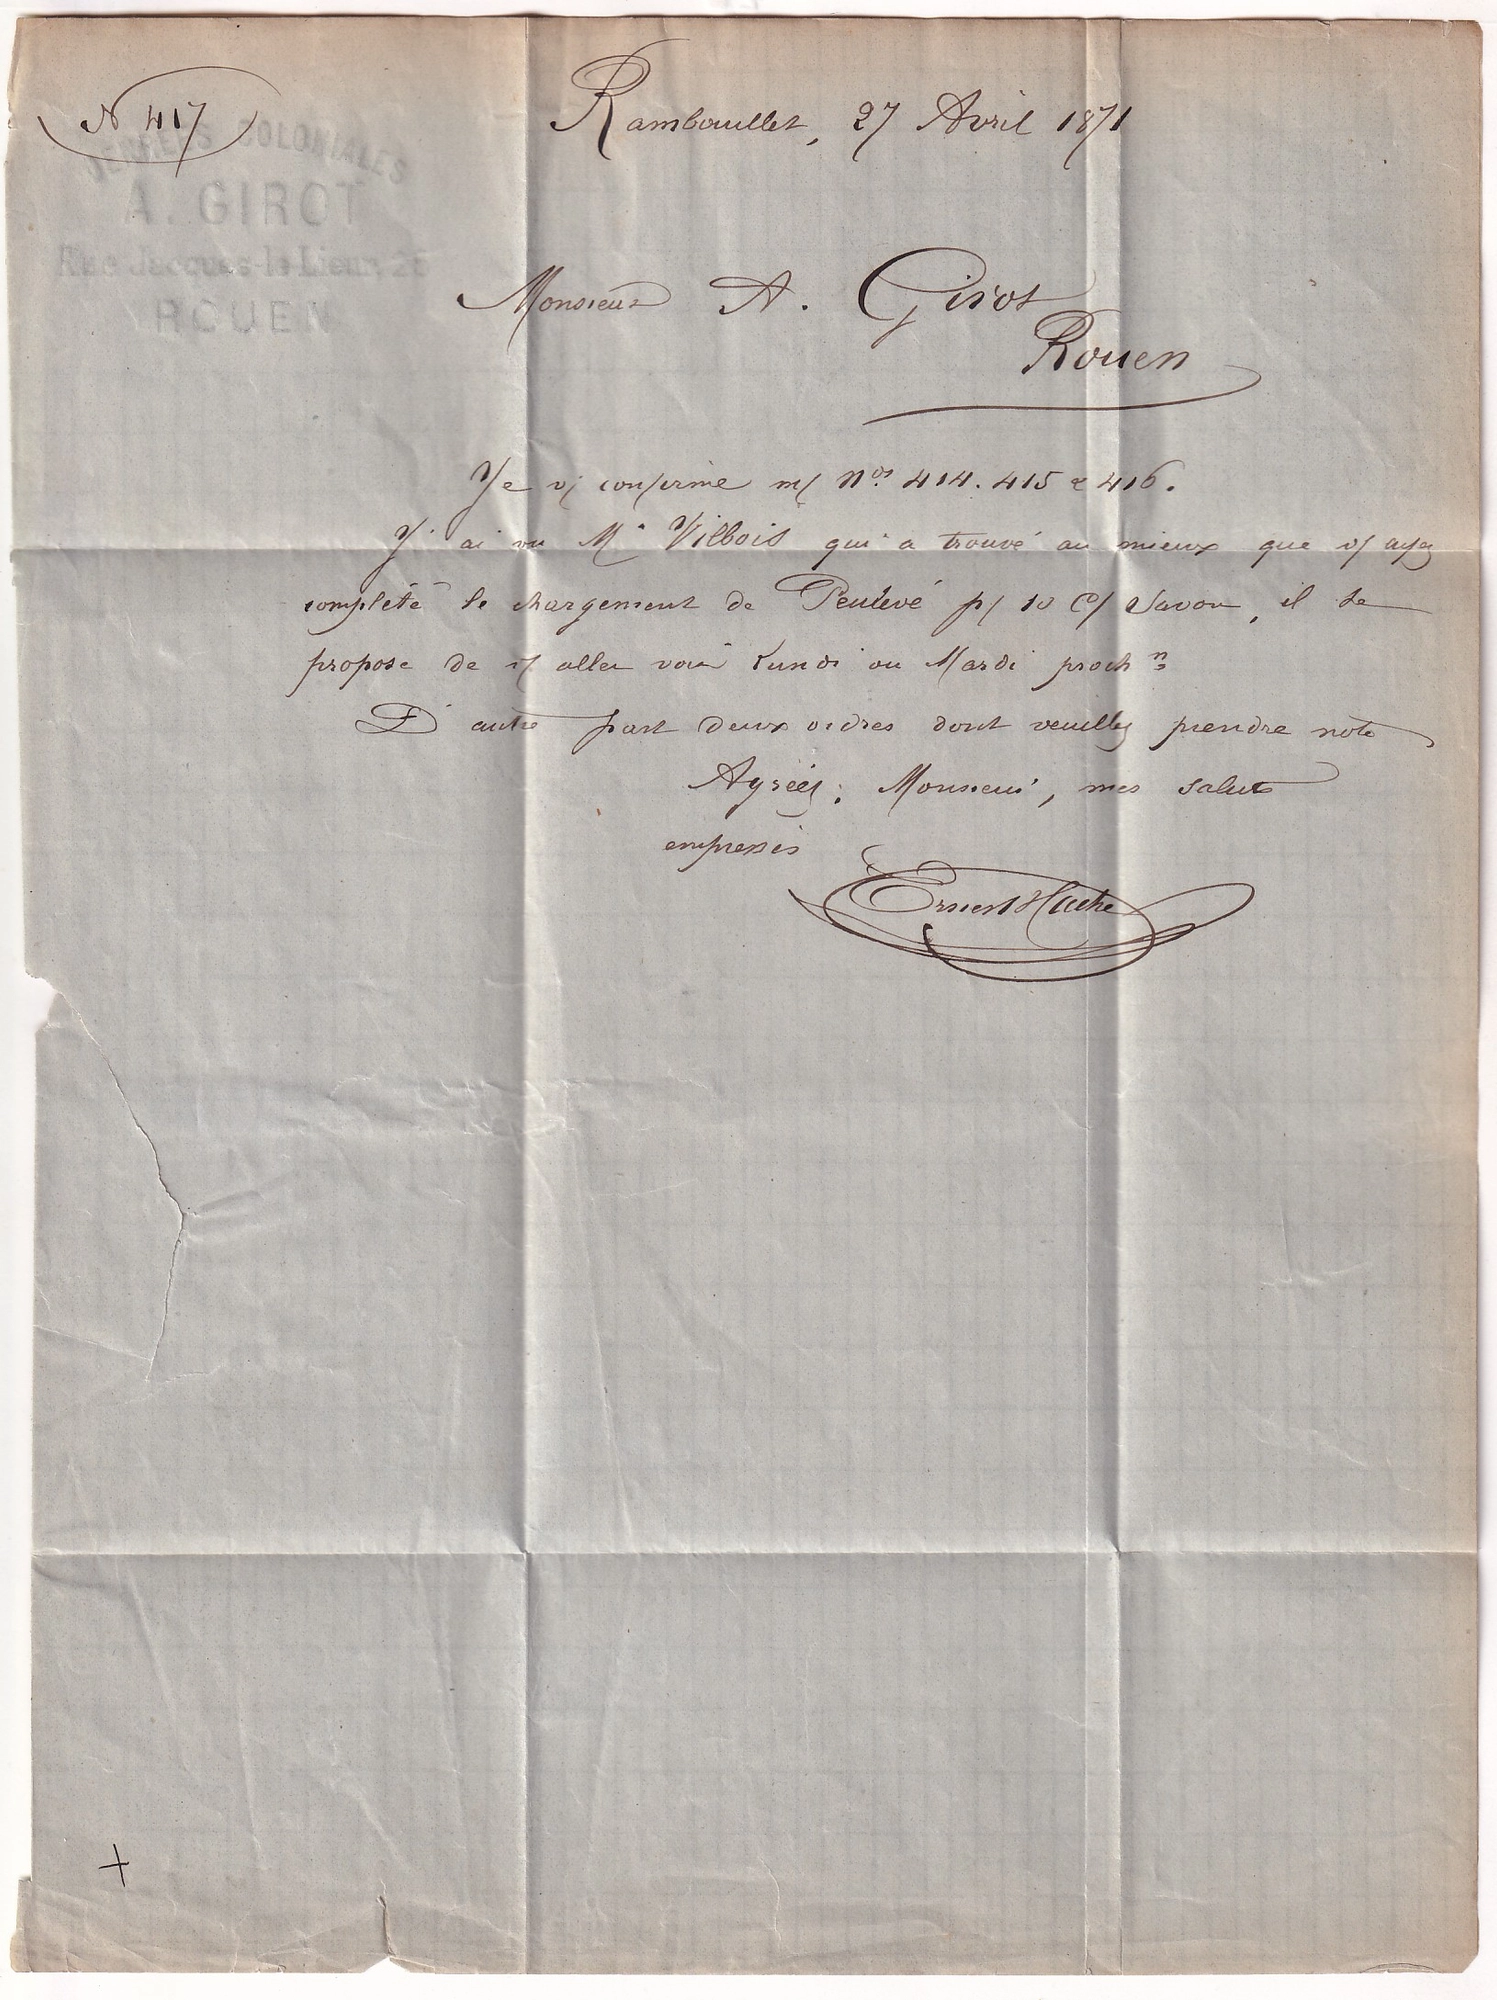 N 417
DENRÉES COLONIALES
A. GIROT
Rue Jacques-le-Lieur, 25
ROUEN
Rambouillet, 27 Avril 1871
Monsieur A. Girot
Rouen
Je v/ confirme m/ Nos. 414. 415 & 416.
J'ai vu Mr Vilbois qui a trouvé au mieux que v/ ayez
complété le chargement de Peulevé p/ 10 C/ Savon, il se
propose de v/ aller voir Lundi ou Mardi prochn
D'autre part deux ordres dont veuillez prendre note
Agréez, Monsieur, mes saluts
empressés
Ernest Hache